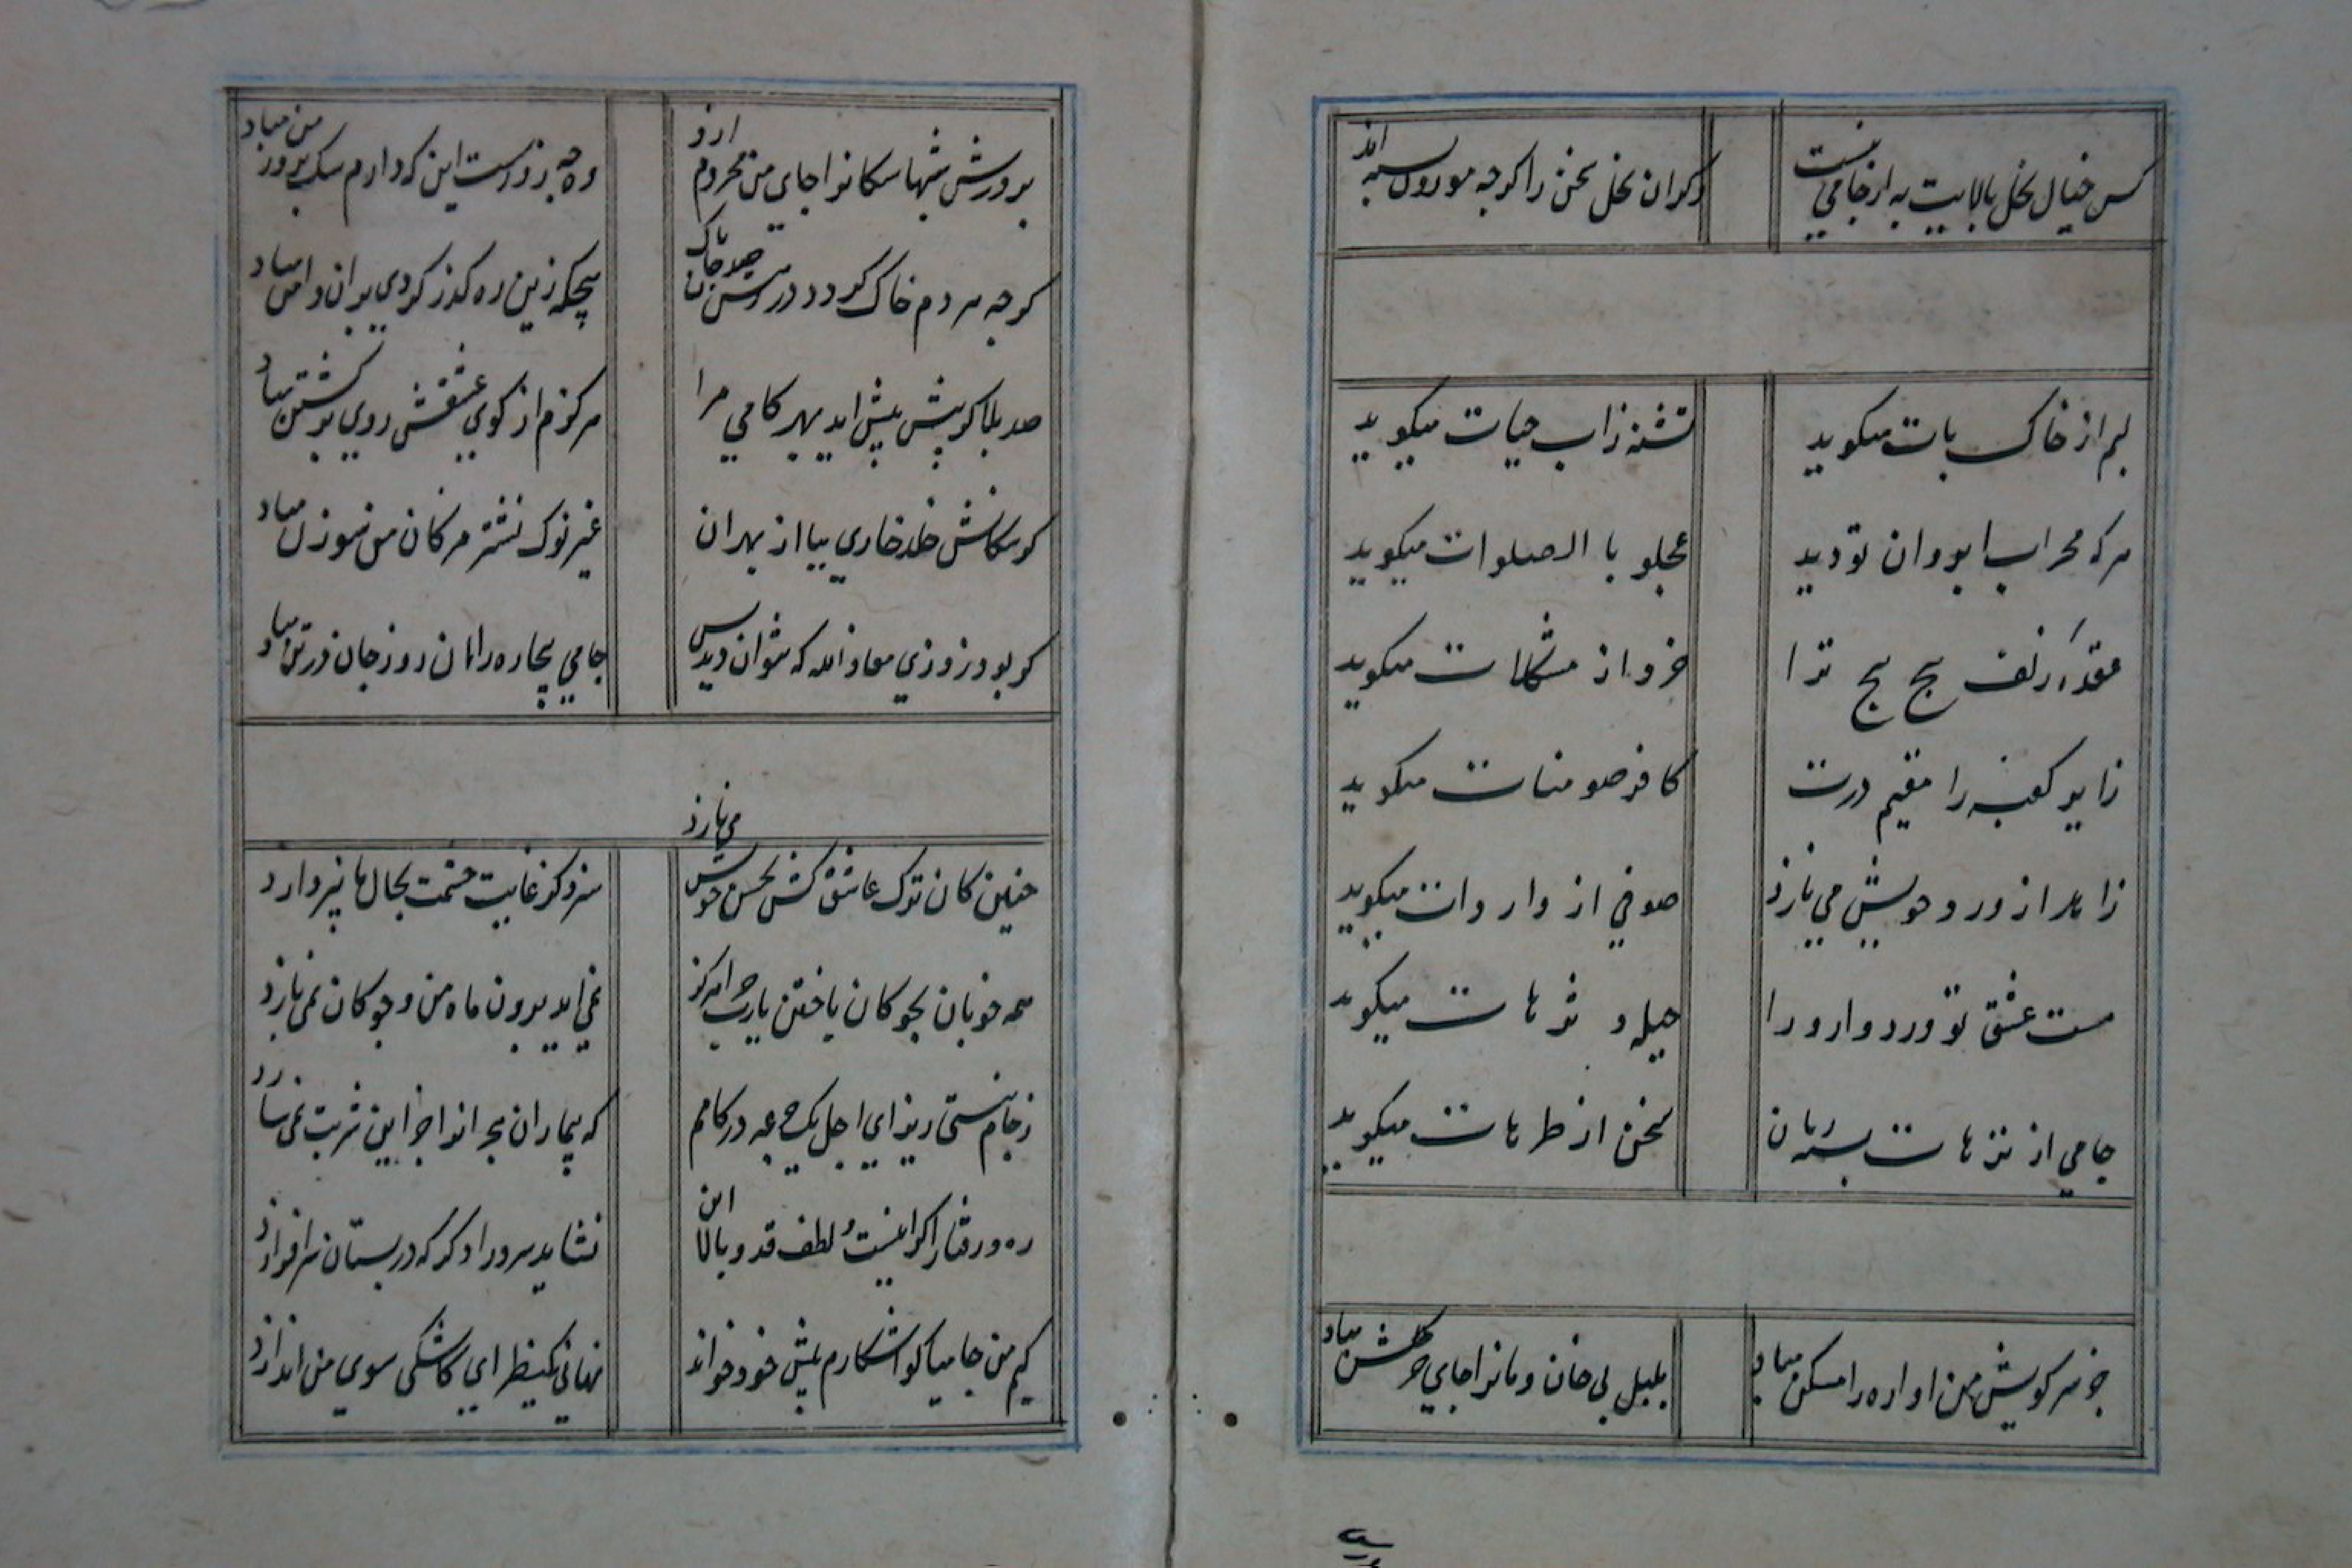 کس خیال نخل بالایت به از جامی نبست
دکران نخل سخن را کرچه موزون بسته اند
لبم از خاک پات میکوید
تشنه ز اب حیات میکوید
هرکه محراب ابروان تو دید
عجلو با الصلوات میکوید
عقدهٔ زلف پیچ پیچ ترا
خرد از مشکلات میکوید
زایر کعبه را مقیم درت
کافر صومنات میکوید
زاهد از ورد خویش می نازد
صوفی از واردات میکوید
مست عشق تو ورد وارد را
حیله و ترهات میکوید
جامی از ترهات بسته زبان
سخن از طرهات میکوید
جز سر کویش من اواره را مسکن مباد
بلبل بی خان و مانرا جای جز کلشن مباد
بر درش شبها سکانرا جای من محروم ازو
وه چه روزست این که دارم سک بروز من مباد
کرچه مردم خاک کردد در رهش صد جان پاک
هیچکه زین ره کذر کردی بران دامن مباد
صد بلا کر پیش پیش اید بهر کامی مرا
هرکزم از کوی عشقش روی برکشتن مباد
کر سکانش خلد خاری بپا از بهر ان
غیر نوک نشتر مژکان من سوزن مباد
کر بود روزی معاذ الله که نتوان دیدنش
جامی بیچاره را ان روز جان در تن مباد
می نازد
چنین کان ترک عاشق کش بحسن خویش
سزد کز غایت حشمت بحال ما نپردازد
همه خوبان بچوکان باختن یارب چرا هرکز
نمی اید برون ماه من و چوکان نمی بازد
ز جام نیستی ریز ای اجل یک جرعه در کامم
که بیماران هجرانرا جز این شربت نمی سازد
ره و رفتار اکر اینست و لطف قد و بالا این
نشاید سرو را دکر که در بستان سر افرازد
کیم من جامیا کو اشکارم پیش خود خواند
نهانی یکنظر ای کاشکی سوی من اندازد